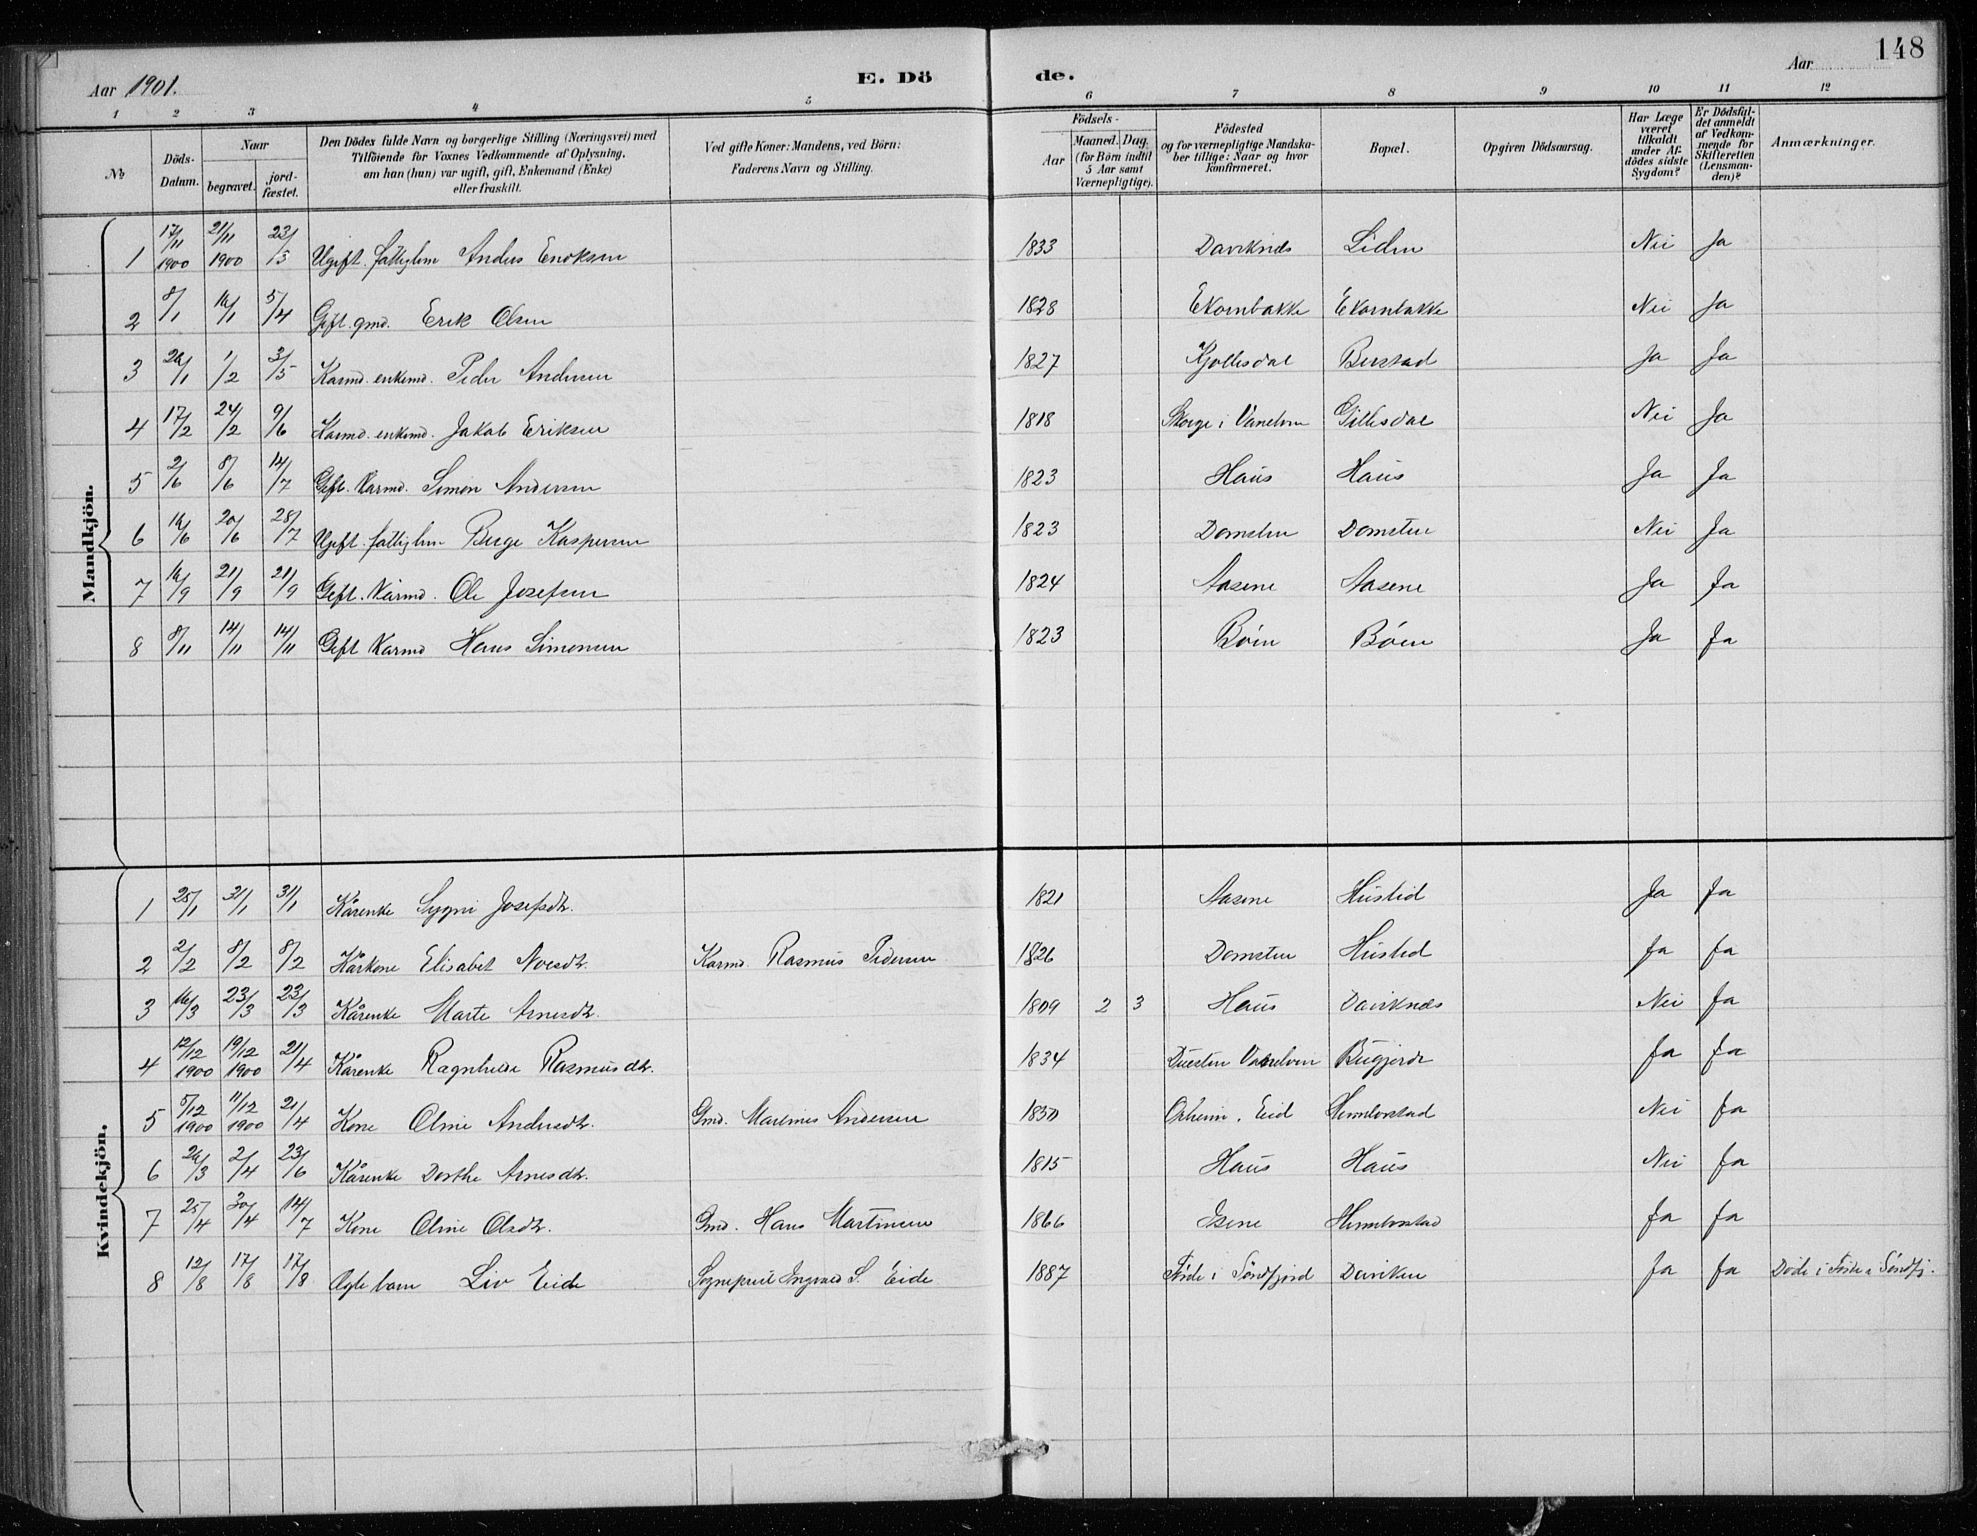 148
Aar 1901.
E. Dö de.
Aar
1 2 3 4 5 6 7 8 9 10 11 12
No
Döds-Datum.
Naar
begravet.
jord-fæstet.
Den Dödes fulde Navn og borgerlige Stilling (Næringsvei) med
Tilföiende for Voxnes Vedkommende af Oplysning,
om han (hun) var ugift, gift, Enkemand (Enke)
eller fraskilt.
Ved gifte Koner: Mandens, ved Börn:
Faderens Navn og Stilling.
Födsels-
Aar
Maaned. Dag.
(for Börn indtil
5 Aar samt
Værnepligtige).
Födested
og for værnepligtige Mandska-
ber tillige: Naar og hvor
konfirmeret.
Bopæl.
Opgiven Dödsaarsag.
Har Læge
været
tilkaldt
under Af-
dödes sidste
Sygdom?
Er Dödsfal-
det anmeldt
af Vedkom-
mende for
Skifteretten
(Lensman-
den)?
Anmærkninger.
Mandkjön.
1 17/11 1900 21/11 1900 23/3 Ugift. fattiglem Anders Enoksen 1833 Daviknes Liden Nei Ja
2 8/1 16/1 5/4 Gift. gmd. Erik Olsen 1828 Ekornbakke Ekornbakke Nei Ja
3 26/1 1/2 3/5 Karmd. enkemd. Peder Andersen 1827 Kjøllesdal Berstad Ja Ja
4 17/2 24/2 9/6 Karmd. enkemd. Jakob Eriksen 1818 Skorge i Vanelven Gillesdal Nei Ja
5 2/6 8/6 14/7 Gift. Karmd. Simon Andersen 1823 Haus Haus Ja Ja
6 16/6 20/6 28/7 Ugift. fattiglem Berge Kaspersen 1823 Domsten Domsten Nei Ja
7 16/9 21/9 21/9 Gift. Karmd. Ole Josefsen 1824 Aasene Aasene Ja Ja
8 8/11 14/11 14/11 Gift Karmd Hans Simonsen 1823 Bøen Bøen Ja Ja
Kvindekjön.
1 25/1 31/1 31/1 Kårenke Sygni Josefsdtr. 1821 Aasene Hustid Ja Ja
2 2/2 8/2 8/2 Kårkone Elisabet Noesdtr. Karmd. Rasmus Pedersen 1826 Domsten Hustid Ja Ja
3 16/3 23/3 23/3 Kårenke Marte Arnesdtr. 1809 2 3 Haus Daviknes Nei Ja
4 12/12 1900 19/12 1900 21/4 Kårenke Ragnhilde Rasmusdtr. 1834 Vanelven Ja Ja
5 5/12 1900 11/12 1900 21/4 Kone Oline Andersdtr. Gmd. Andersen 1830 Eid Nei Ja
6 26/3 2/4 23/6 Kårenke Dorthe Arnesdtr. 1815 Haus Haus Nei Ja
7 25/4 30/4 14/7 Kone Oline Olsdtr. Gmd. Hans Martinsen 1866 Isene Ja Ja
8 12/8 17/8 17/8 Ægte barn Liv Eide Sognepræst Ingvald S. Eide 1887 Førde i Søndfjord Daviken Ja Ja Døde i Førde i Søndfj.